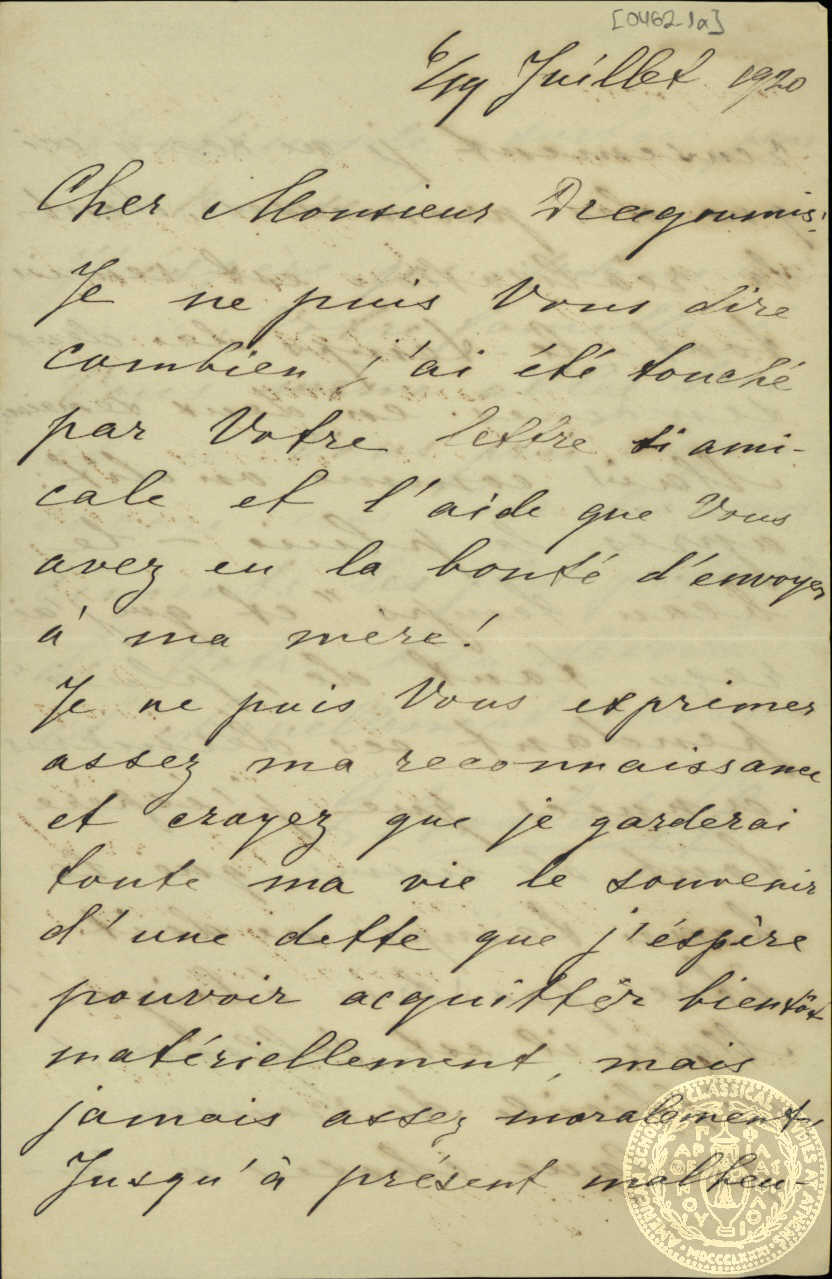 [0462-1a]
6/19 Juillet 1920
Cher Monsieur Dragoumis,
Je ne puis Vous dire
combien j'ai été touché
par Votre lettre si ami-
cale et l'aide que Vous
avez eu la bonté d'envoyer
à ma mère!
Je ne puis Vous exprimer
assez ma reconnaissance
et croyez que je garderai
toute ma vie le souvenir
d'une dette que j'éspère
pouvoir acquitter bientôt
matériellement, mais
jamais assez moralement,
Jusqu'à présent malheu-
AMERICAN SCHOOL OF CLASSICAL STUDIES AT ATHENS
MDCCCLXXXI